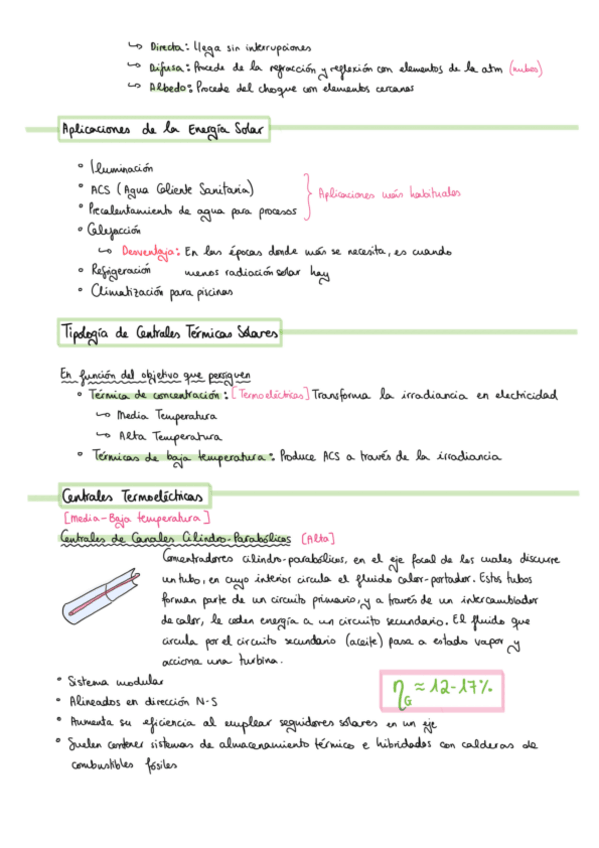 ↳ Directa: Llega sin interrupciones
↳ Difusa: Procede de la refracción y reflexión con elementos de la atm (nubes)
↳ Albedo: Procede del choque con elementos cercanos
Aplicaciones de la Energía Solar
° Iluminación
° ACS (Agua Caliente Sanitaria)
Aplicaciones más habituales
° Precalentamiento de agua para procesos
° Calefacción
↳ Desventaja: En las épocas donde más se necesita, es cuando
menos radiación solar hay
° Refrigeración
° Climatización para piscinas
Tipología de Centrales Térmicas Solares
En función del objetivo que persiguen
° Térmica de concentración: [Termoeléctricas] Transforma la irradiancia en electricidad
↳ Media Temperatura
↳ Alta Temperatura
° Térmicas de baja temperatura: Produce ACS a través de la irradiancia
Centrales Termoeléctricas
[Media-Baja temperatura]
Centrales de Canales Cilindro-Parabólicos [Alta]
Concentradores cilindro-parabólicos, en el eje focal de los cuales discurre
un tubo, en cuyo interior circula el fluido calor-portador. Estos tubos
forman parte de un circuito primario, y a través de un intercambiador
de calor, le ceden energía a un circuito secundario. El fluido que
circula por el circuito secundario (aceite) pasa a estado vapor y
acciona una turbina.
° Sistema modular
° Alineados en dirección N-S
ηG ≈ 12-17%
° Aumenta su eficiencia al emplear seguidores solares en un eje
° Suelen contener sistemas de almacenamiento térmico e hibridados con calderas de
combustibles fósiles